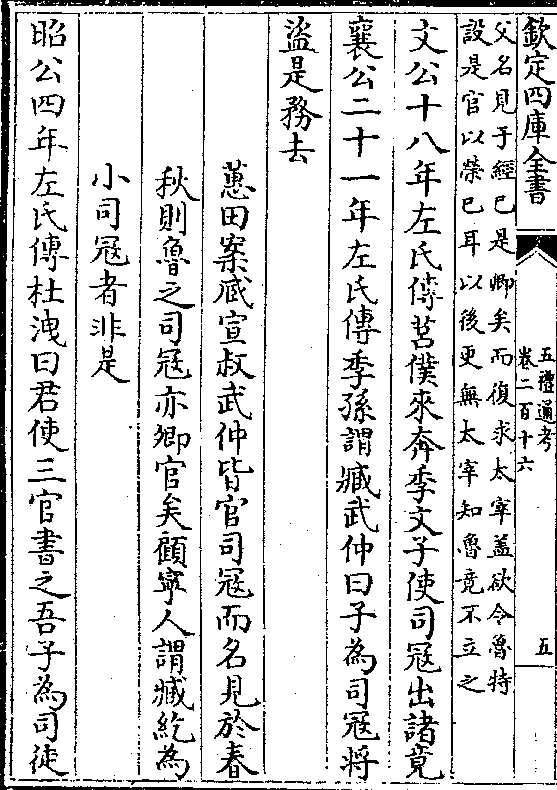 欽定四庫全書
五禮通考
卷二百十六
五
父名見于經巳是卿矣而復求太宰蓋欲令魯特
設是官以榮巳耳以後更無太宰知魯竟不立之
文公十八年左氏傳莒僕來奔季文子使司冦出諸竟
襄公二十一年左氏傳季孫謂臧武仲曰子為司冦將
盜是務去
蕙田案臧宣叔武仲皆官司冦而名見於春
秋則魯之司冦亦卿官矣顧寧人謂臧紇為
小司冦者非是
昭公四年左氏傳杜洩曰君使三官書之吾子為司徒